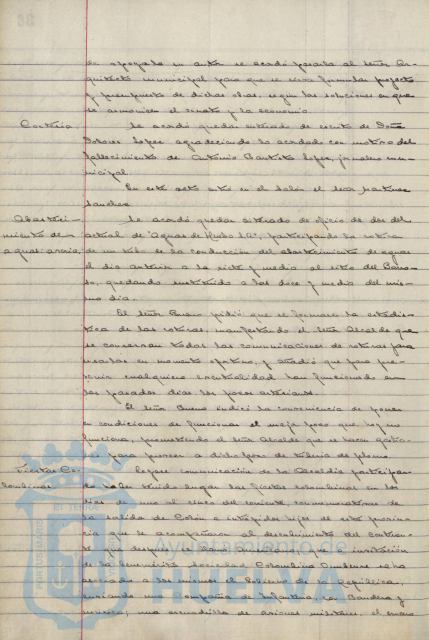 de apoyarla en autor se acordó pasarla al Señor Ar-
quitecto municipal para que se sirva formular proyecto
y presupuesto de dichas obras, según las soluciones en que
se armonicen el ornato y la economía.
Cortesía. Se acordó quedar enterado de escrito de Doña
Dolores López agradeciendo lo acordado con motivo del
fallecimiento de Antonio Bautista López, jornalero mu-
nicipal.
En este acto entró en el Salón el Señor Martínez
Sánchez
Abasteci-
miento de
aguas: avería.
Se acordó quedar enterado de oficio de dos del
actual de "Aguas de Huelva S.A", participando la rotura
de un tubo en la conducción del abastecimiento de aguas
el día anterior a las siete y media al sitio del
quedando restituido a las doce y media del mis-
mo día.
El Señor Bueno pidió que se formara la estadís-
tica de las roturas, manifestando el Señor Alcalde que
se conservan todas las comunicaciones de roturas para
usarlas en momento oportuno, y añadió que para pre-
venir cualquiera eventualidad han funcionado en
los pasados días los pozos anteriores.
El Señor Bueno indicó la conveniencia de poner
en condiciones de funcionar el mejor pozo que hoy no
funciona, prometiendo el Señor Alcalde que se harán gestio-
nes para proveer a dicho pozo de tubería de plomo.
Fiestas Co-
lombinas
Leyose comunicación de la Alcaldía participan-
do haber tenido lugar las fiestas colombinas en los
días de uno al cinco del corriente, conmemorativas de
la salida de Colón e intrépidos hijos de esta provin-
cia que le acompañaron al descubrimiento del Continen-
te que después se llamó y que a invitación
de la benemérita Sociedad Colombina Onubense se ha
asociado a las mismas el Gobierno de la República,
enviando una Compañía de Infantería, con Bandera y
música; una escuadrilla de aviones militares, el
Ayuntamiento de
HUELVA